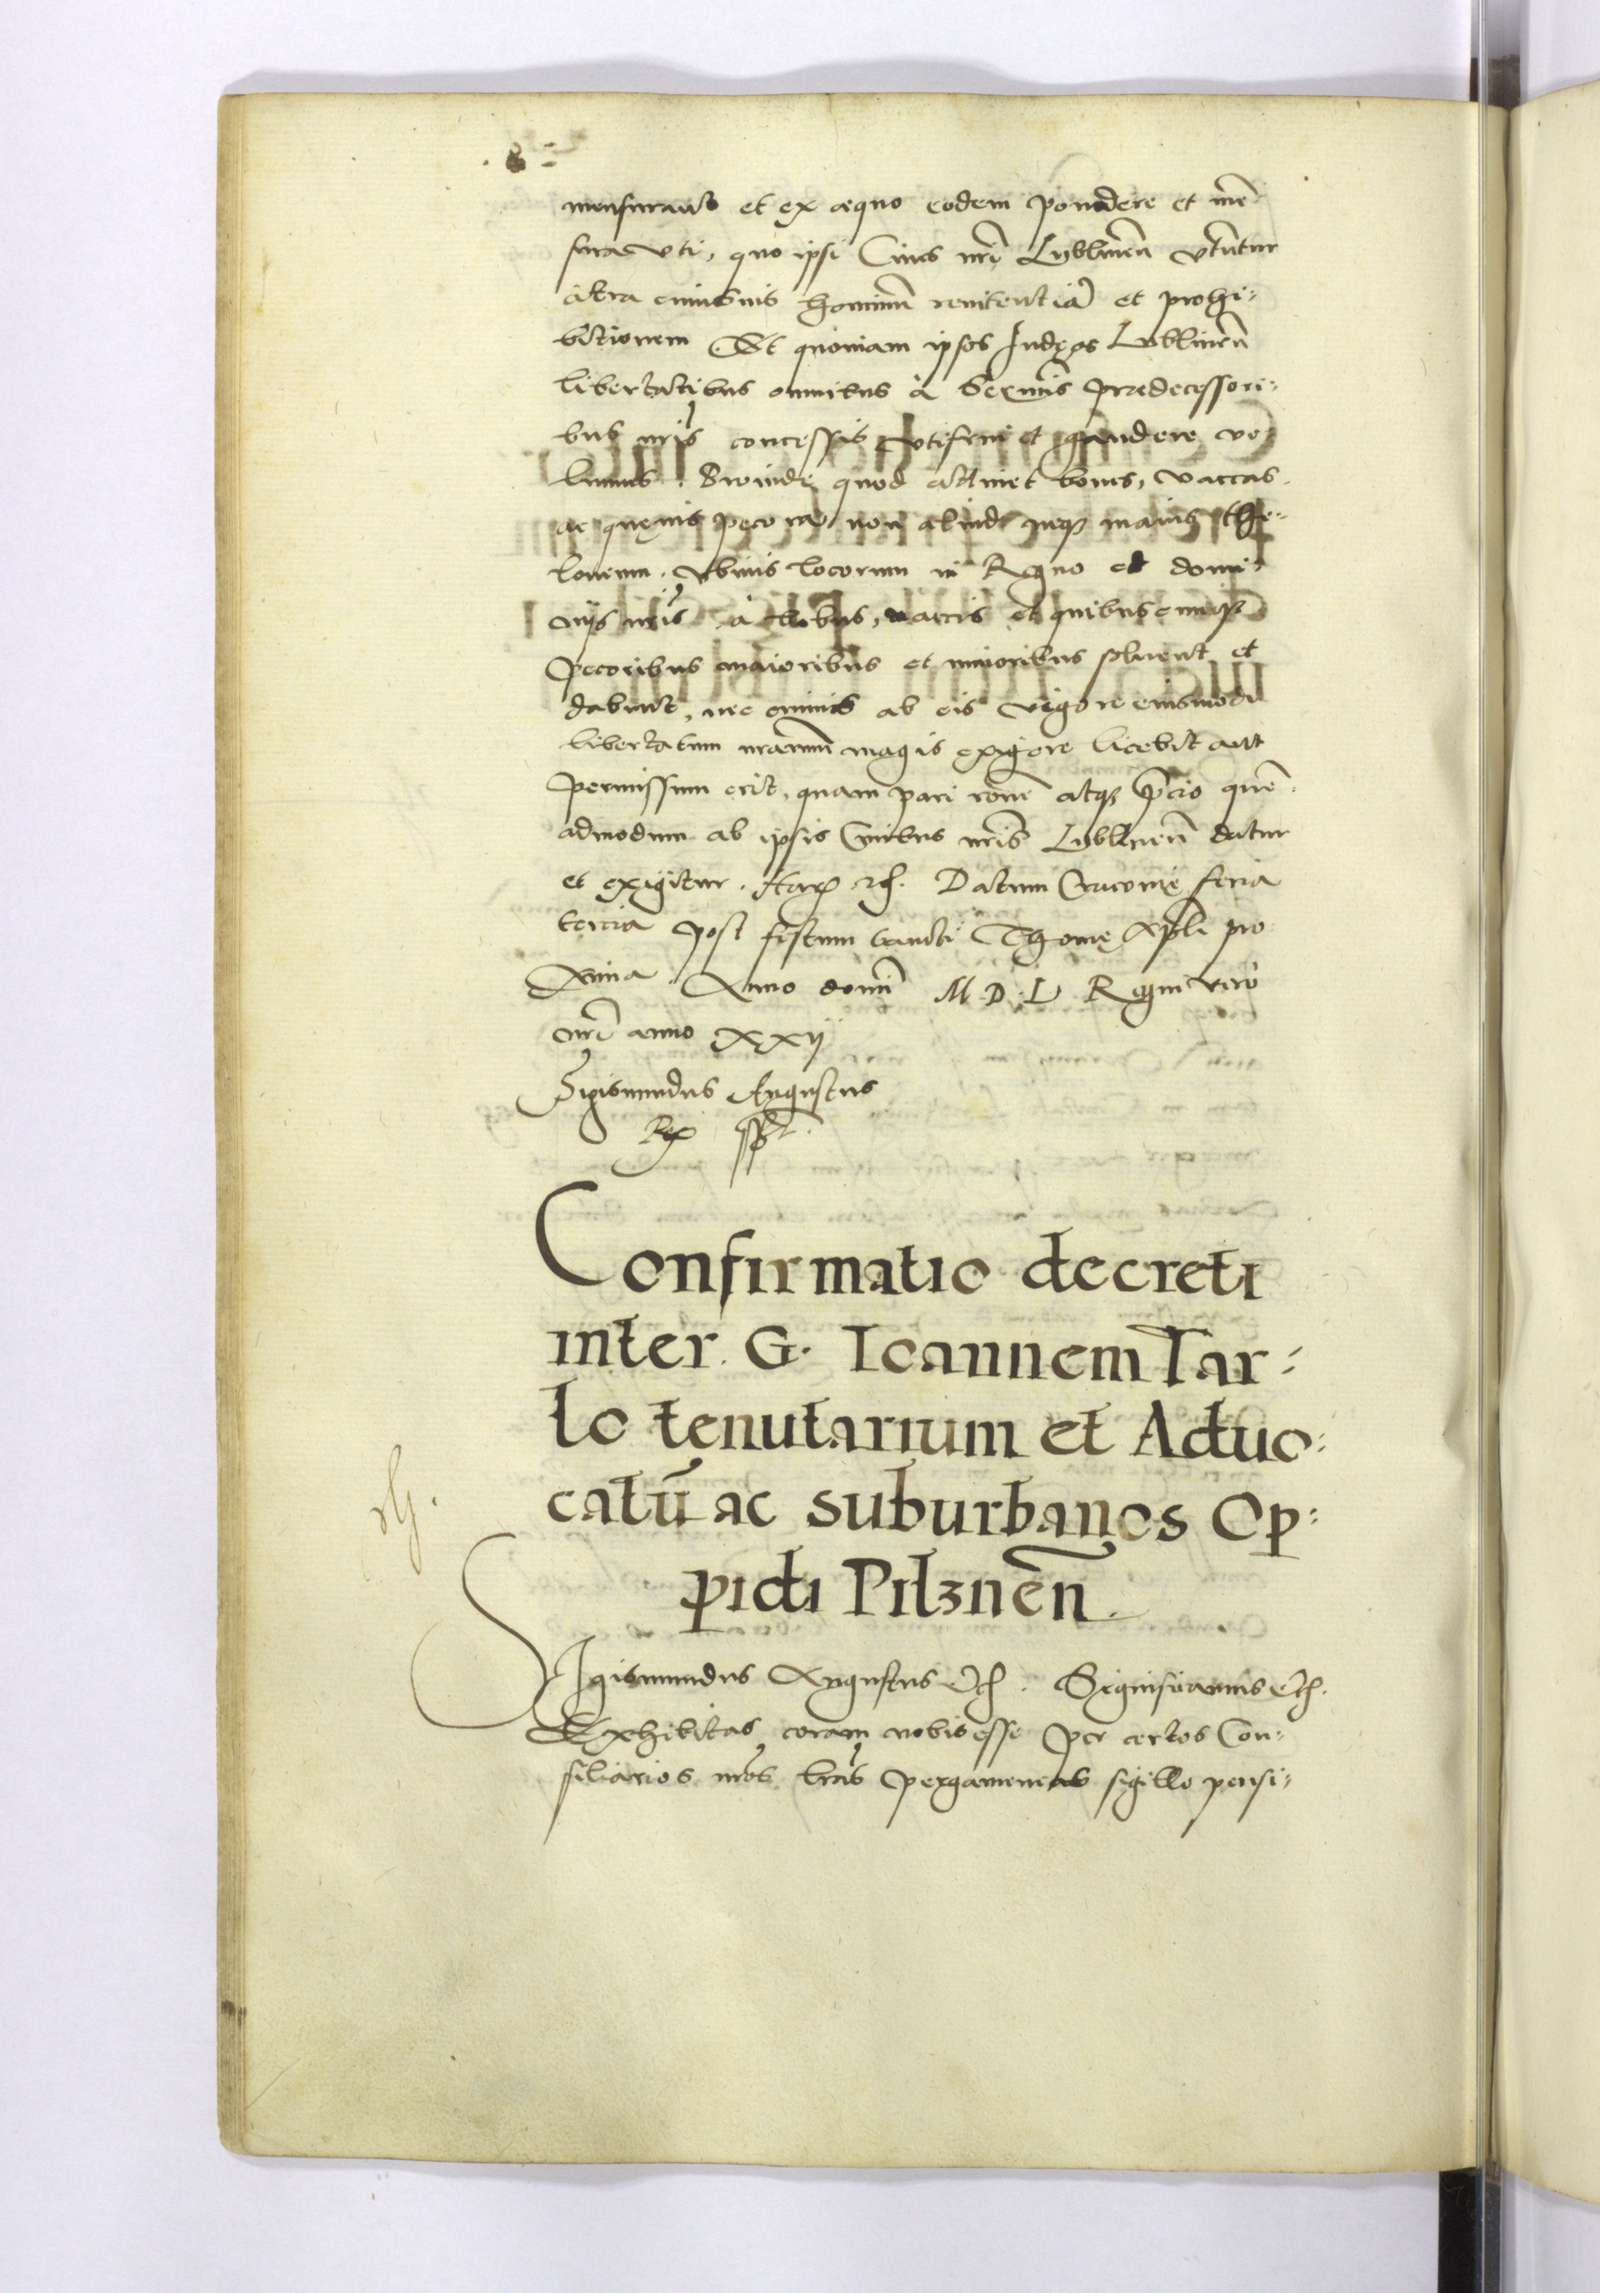 mensurare et ex æquo eodem pondere et me¯
sura vti, quo ipsi Ciues nri Lyblinen vtuntur
citra cuiusuis hominum renitentia et prohi-
bitionem Et quoniam ipsos Iudęos Lublinen
libertatibus omnibus à Serenis Prædecessori-
bus nris concessis vti frui et gaudere vo-
lumus. Proinde quod attinet boues, vaccas
ac queuis pecora non aliud neq maius the-
loneum. vbiuis locorum in Regno et domi-
nijs nris à bobus, vaccis et quibuscunq
Pecoribus maioribus et minoribus soluent et
dabunt, nec cuiuis ab eis vigore eiusmodi
libertatum nrarum magis exigere licebit aut
Permissum erit, quam pari rone atq precio que¯
admodum ab ipsis Ciuibus nris Lyblinen datur
et exigitur. Harum etc. Datum Cracouię feria
tercia Post festum sancti Thomę Apli pro
xima Anno domini M.D.L Regni vero
nri anno XXij
Sigismundus Augustus
Rex sspt.
Confirmatio decreti
inter G. Ioannem Tar-
lo tenutarium et Aduo-
catū ac suburbanos Op-
pidi Pilznēn.
SIgismundus Augustus etc. Significamus etc.
Exhibitas coram nobis esse Per certos Con-
siliarios nros lras Pergameneas sigillo pensi-